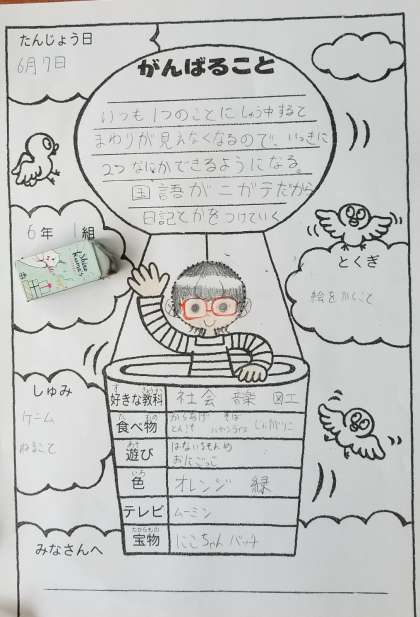 たんじょう日
6月7日
がんばること
いつも1つのことにしゅう中すると
まわりが見えなくなるので、いっきに
2つなにかできるようになる。
国語がニガテだから
日記とかをつけていく
6年 1組
Shine
とくぎ
絵をかくこと
しゅみ
ゲーム
ねること
好きな教科 社会 音楽 図工
食べ物 からあげ そば
とんじる ハヤシライス じゃがりこ
遊び はないちもんめ
おにごっこ
色 オレンジ 緑
テレビ ムーミン
宝物 にこちゃんバッチ
みなさんへ